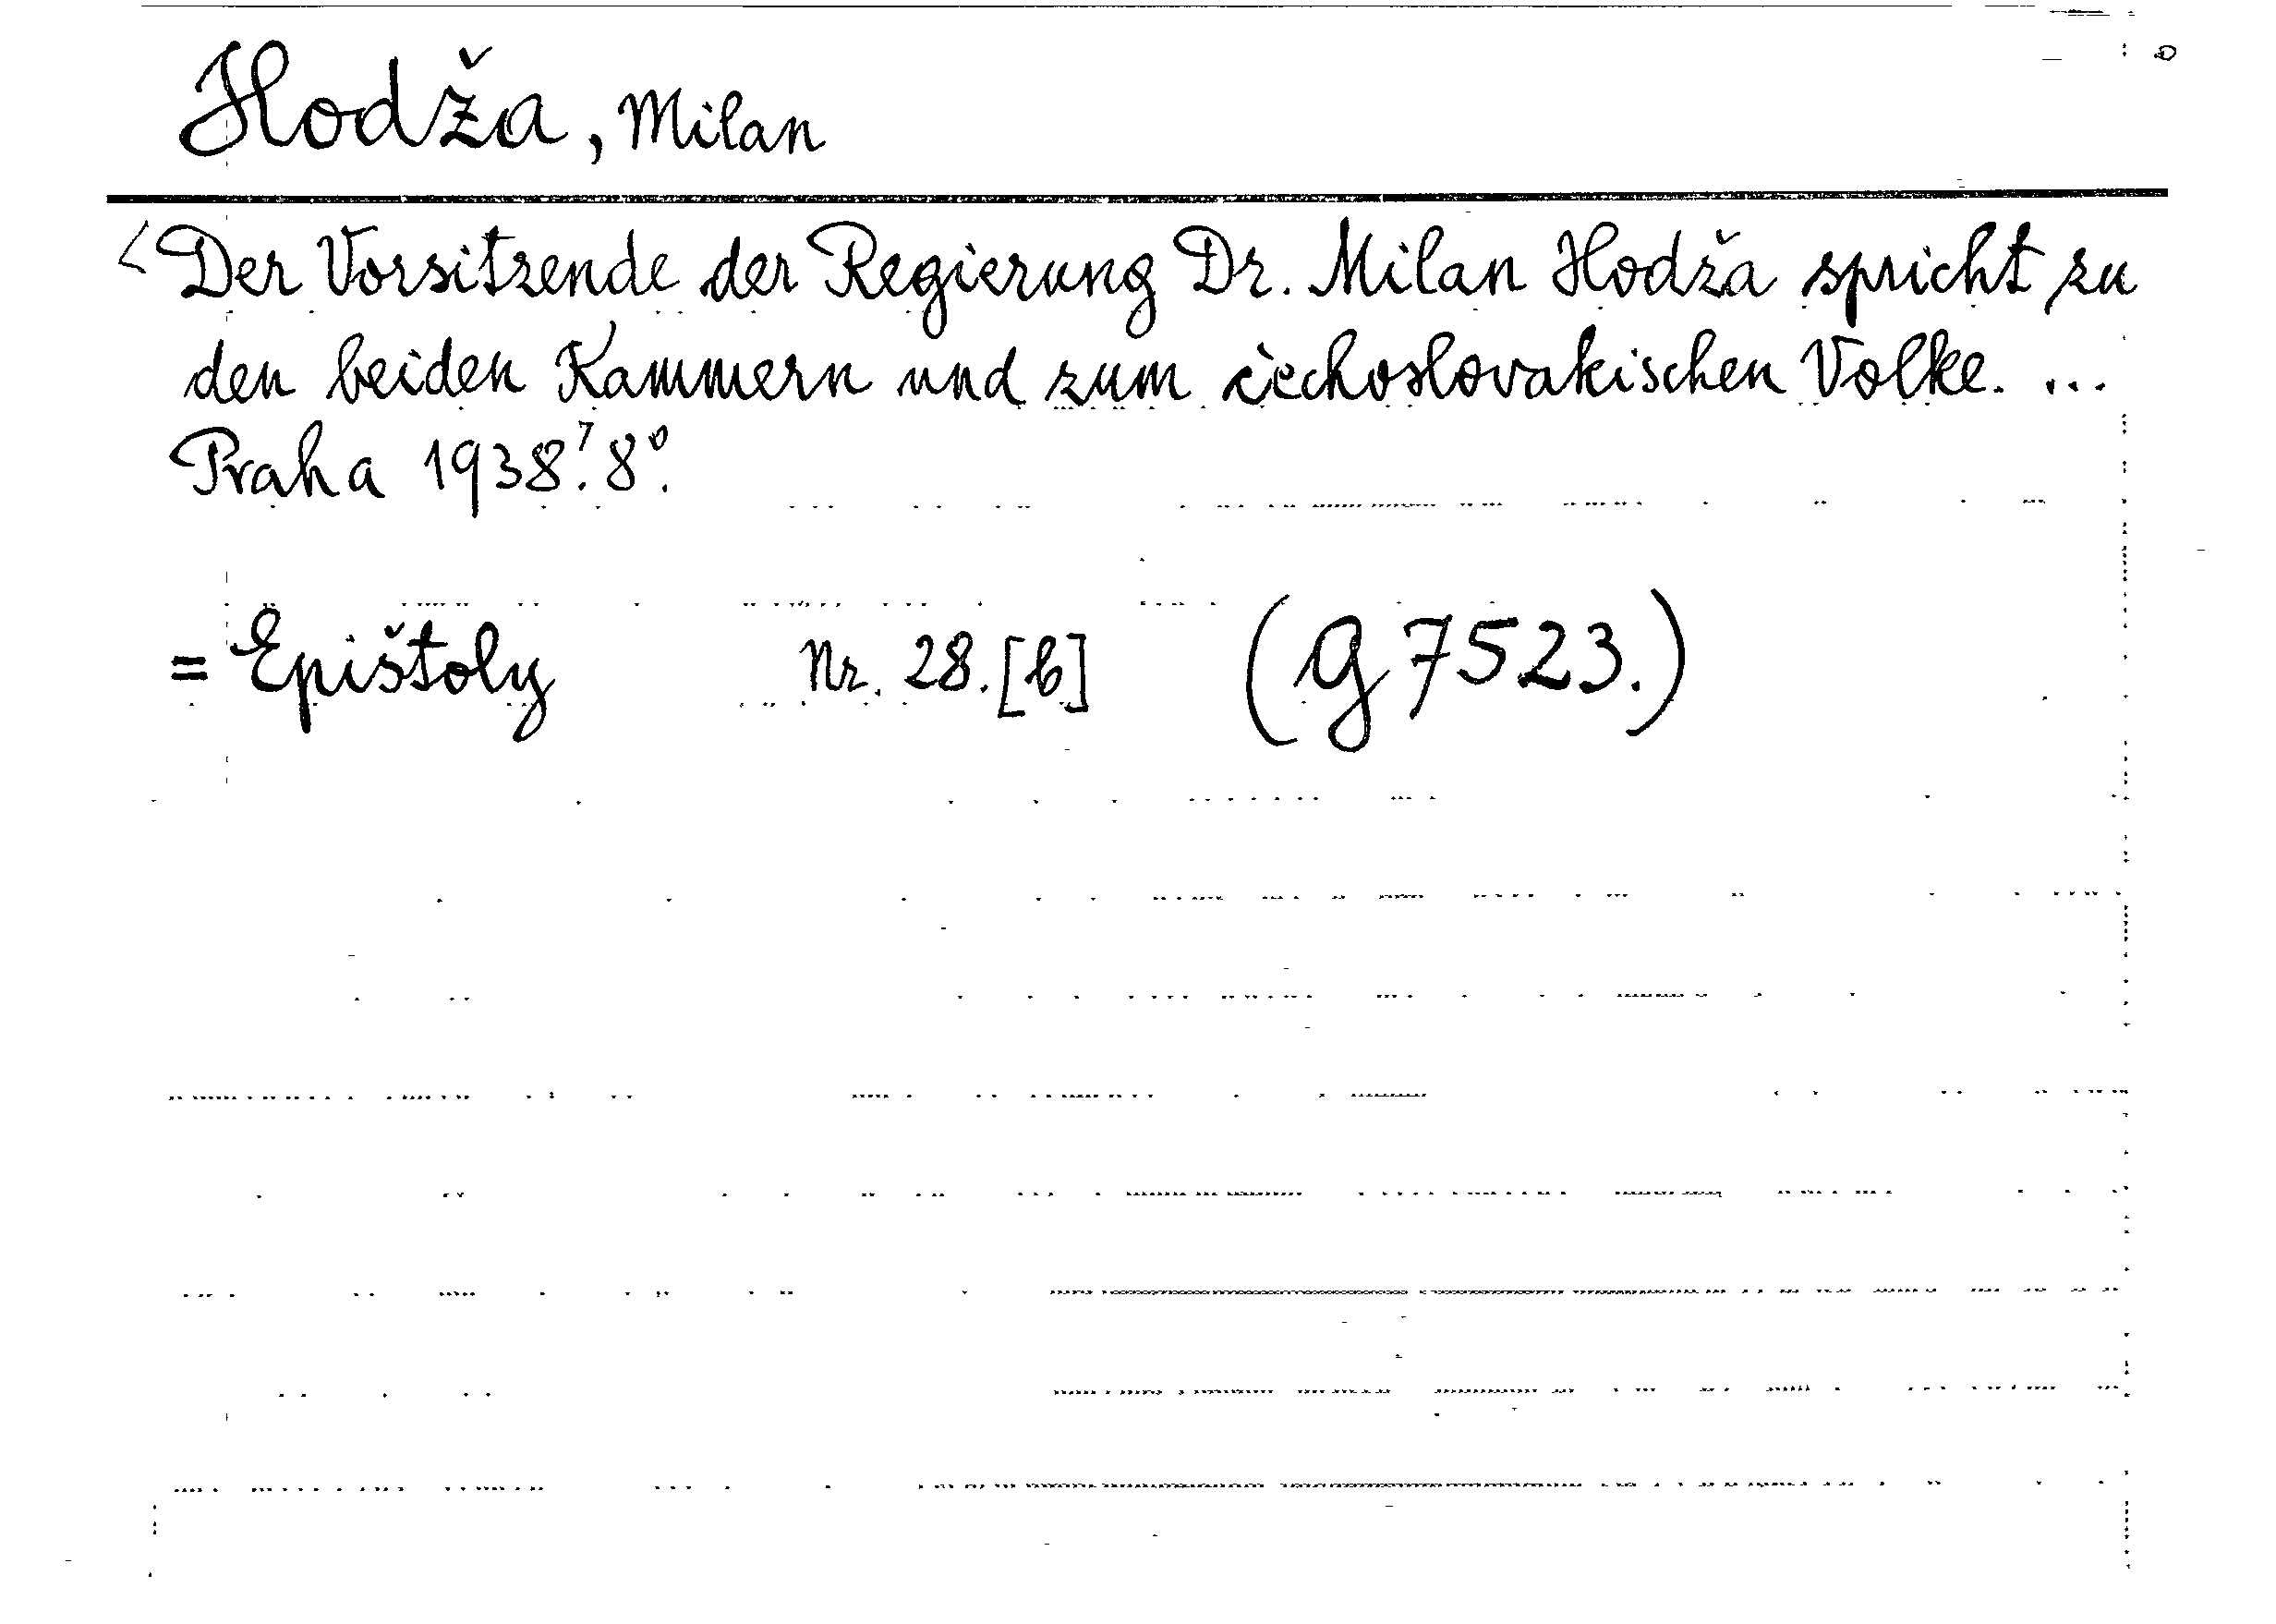 Hodža, Milan
<Der Vorsitzende der Regierung Dr. Milan Hodža spricht zu
den beiden Kammern und zum čechoslovakischen Volke. ...
Praha 1938.⁷ 8⁰.
= Epištoly Nr. 28. [b] (G 7523.)